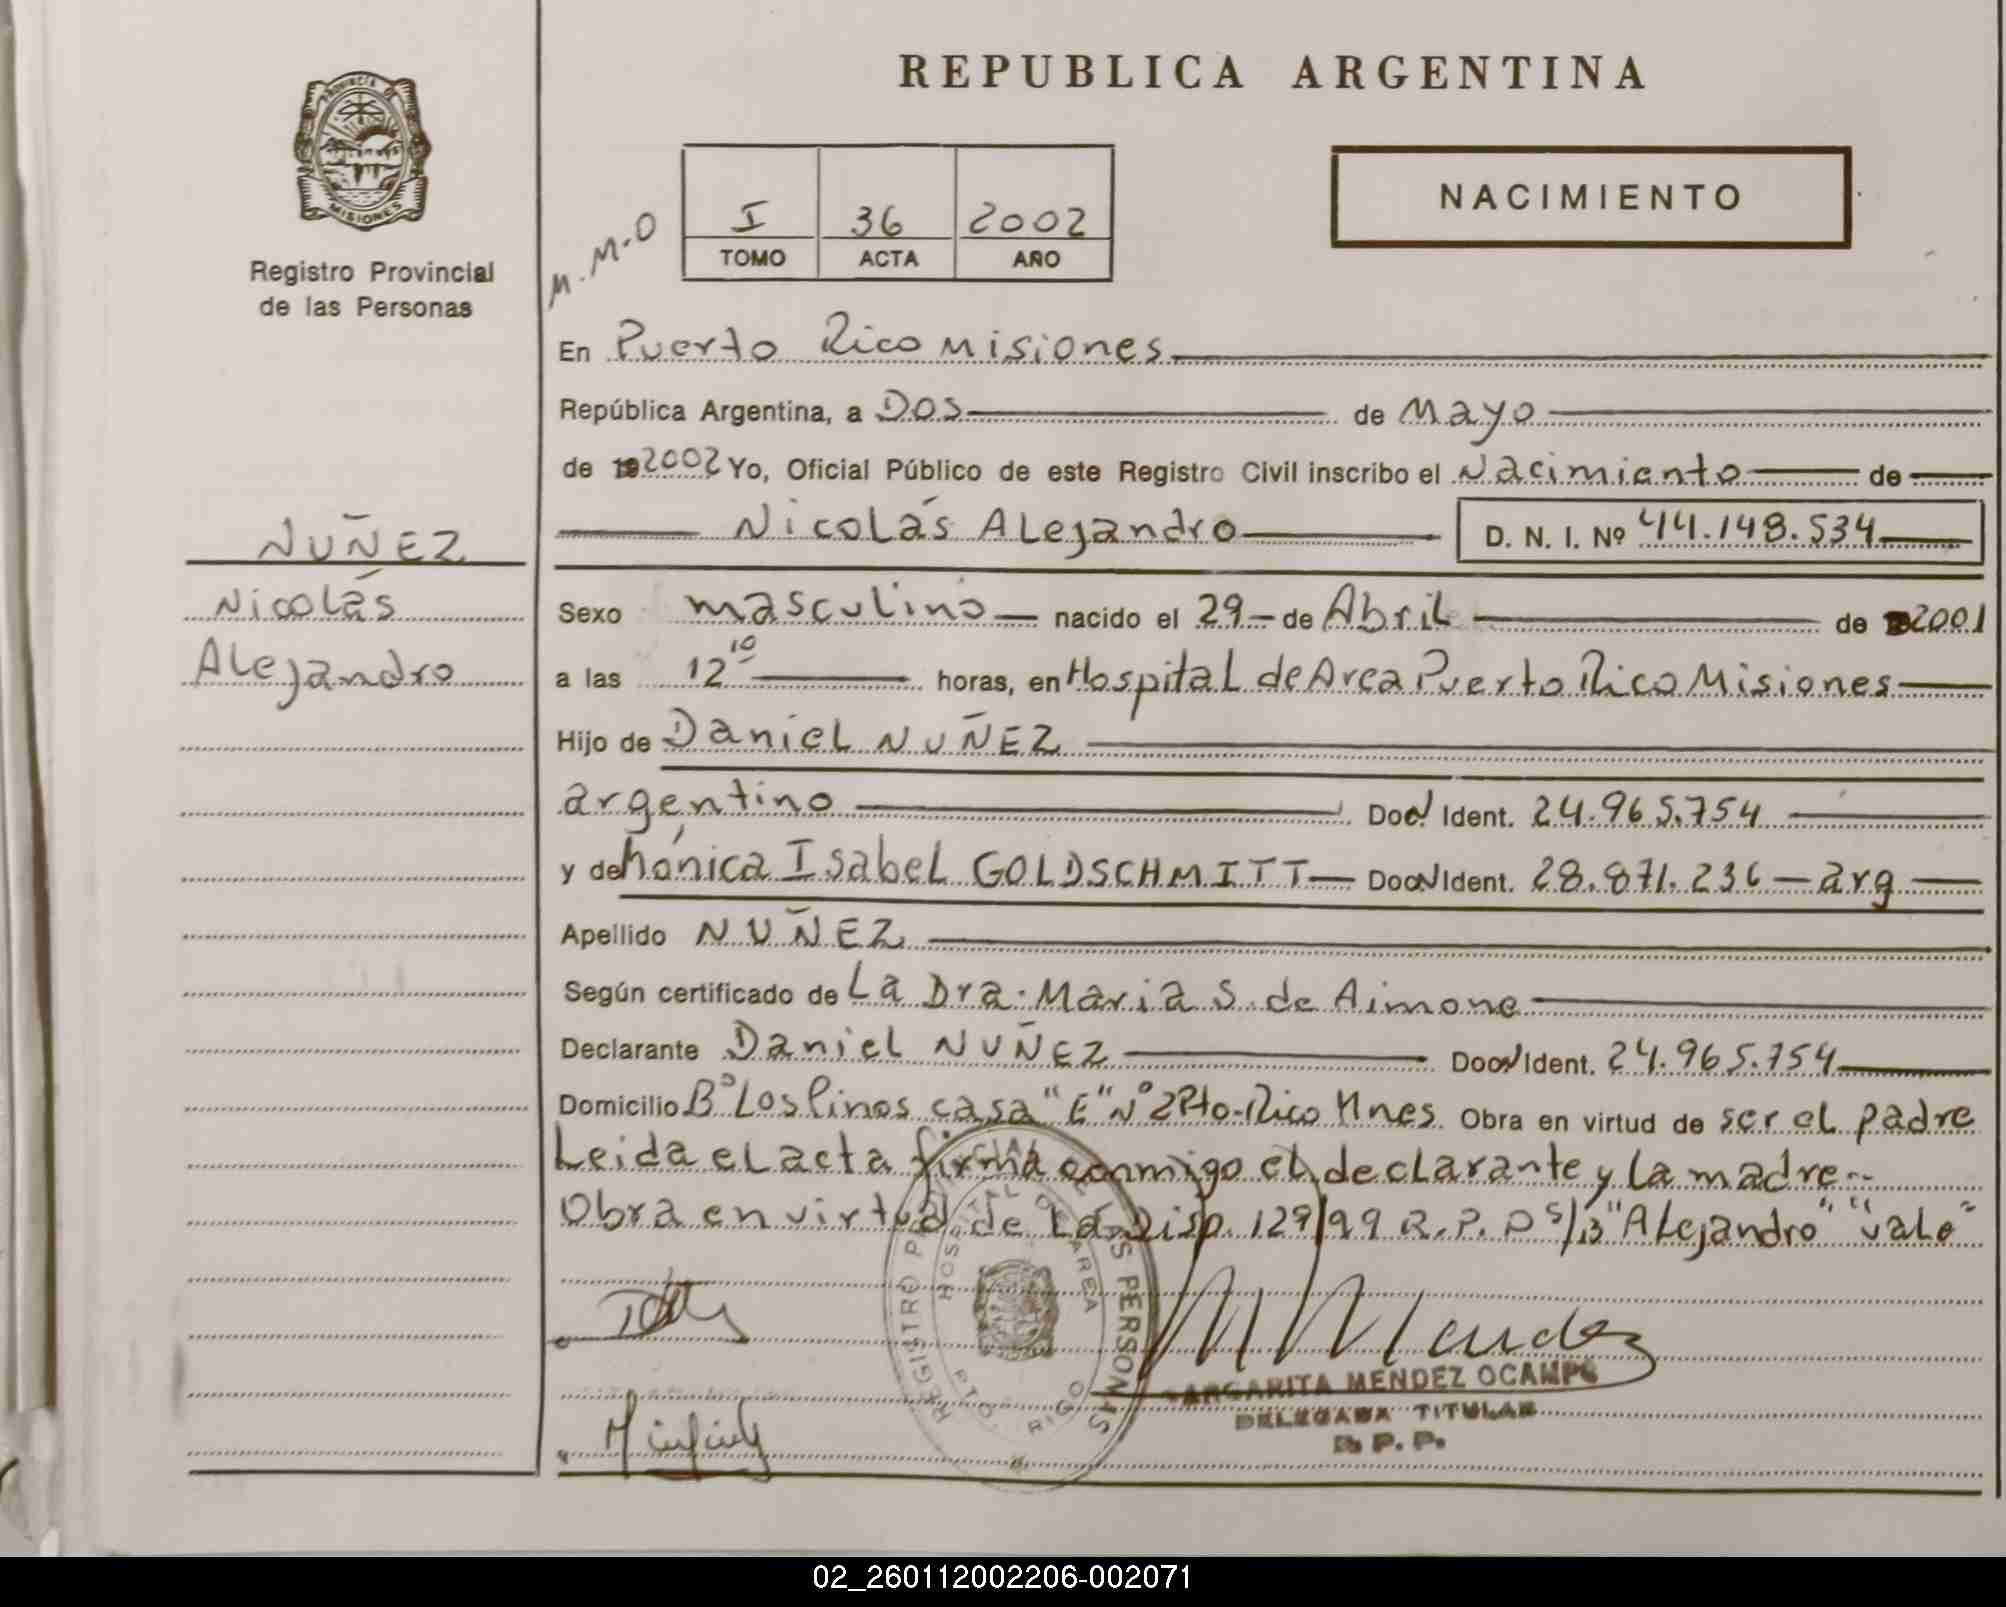 REPUBLICA ARGENTINA
PROVINCIA DE MISIONES
Registro Provincial
de las Personas
NACIMIENTO
M.M.O
I 36 2002
TOMO ACTA AÑO
En Puerto Rico Misiones
República Argentina, a Dos de Mayo
de 19 2002 Yo, Oficial Público de este Registro Civil inscribo el Nacimiento de
Nicolás Alejandro D. N. I. Nº 44.148.534
NUÑEZ
Nicolás
Alejandro
Sexo masculino nacido el 29 de Abril de 2001
a las 12 10 horas, en Hospital de Area Puerto Rico Misiones
Hijo de Daniel NUÑEZ
argentino Doc N Ident. 24.965.754
y de Mónica Isabel GOLDSCHMITT Doc N Ident. 28.871.236 arg
Apellido NUÑEZ
Según certificado de La Dra. Maria S. de Aimone
Declarante Daniel NUÑEZ Doc N Ident. 24.965.754
Domicilio Bº Los Pinos casa "E" Nº 2 Pto. Rico Mnes. Obra en virtud de ser el padre
Leida el acta firma conmigo el declarante y la madre..
Obra en virtud de La Disp. 129/99 R.P.P S/B "Alejandro" "vale"
REGISTRO PROVINCIAL DE LAS PERSONAS
HOSPITAL DE AREA
PTO. RICO
M Mendez
MARGARITA MENDEZ OCAMPO
DELEGADA TITULAR
R. P. P.
02_260112002206-002071